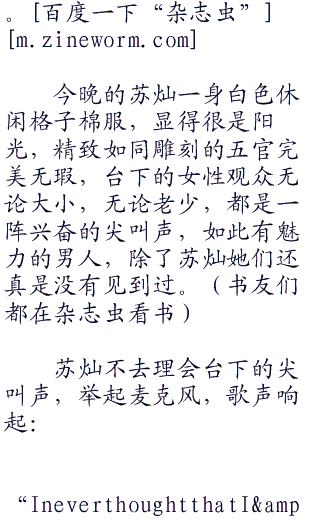 。[百度一下“杂志虫”]
[m.zineworm.com]
今晚的苏灿一身白色休
闲格子棉服，显得很是阳
光，精致如同雕刻的五官完
美无瑕，台下的女性观众无
论大小，无论老少，都是一
阵兴奋的尖叫声，如此有魅
力的男人，除了苏灿她们还
真是没有见到过。（书友们
都在杂志虫看书）
苏灿不去理会台下的尖
叫声，举起麦克风，歌声响
起：
“IneverthoughtthatI&amp